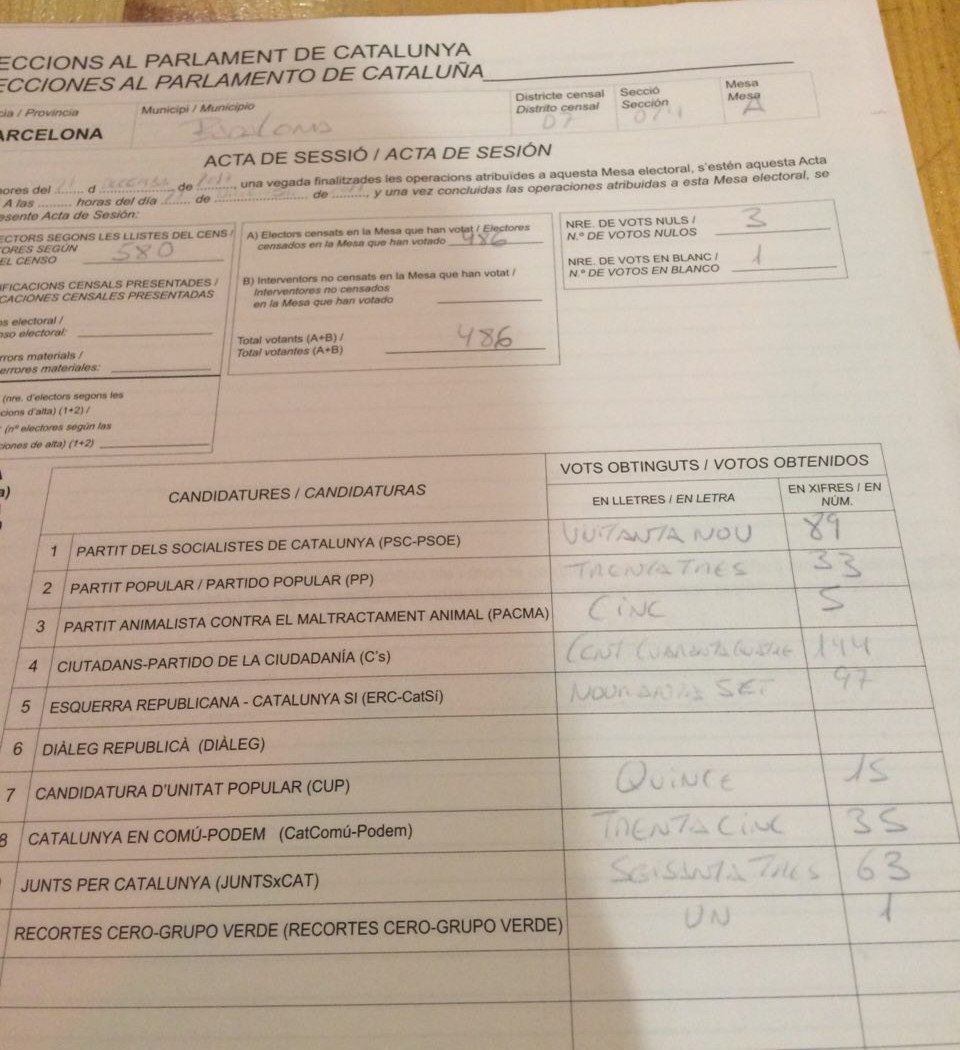 ECCIONS AL PARLAMENT DE CATALUNYA
ECCIONES AL PARLAMENTO DE CATALUÑA
cia / Provincia
ARCELONA
Municipi / Municipio
Districte censal
Distrito censal
Secció
Sección
Mesa
Mesa
A
ACTA DE SESSIÓ / ACTA DE SESIÓN
hores del d de , una vegada finalitzades les operacions atribuïdes a aquesta Mesa electoral, s'estén aquesta Acta
A las horas del día de de , y una vez concluidas las operaciones atribuidas a esta Mesa electoral, se
esente Acta de Sesión:
ECTORS SEGONS LES LLISTES DEL CENS /
TORES SEGÚN
EL CENSO 580
IFICACIONS CENSALS PRESENTADES /
CACIONES CENSALES PRESENTADAS
ns electoral /
nso electoral:
rrors materials /
errores materiales:
(nre. d'electors segons les
cions d'alta) (1+2) /
(nº electores según las
ciones de alta) (1+2)
A) Electors censats en la Mesa que han votat / Electores
censados en la Mesa que han votado 486
B) Interventors no censats en la Mesa que han votat /
Interventores no censados
en la Mesa que han votado
Total votants (A+B) /
Total votantes (A+B) 486
NRE. DE VOTS NULS /
N.º DE VOTOS NULOS 3
NRE. DE VOTS EN BLANC /
N.º DE VOTOS EN BLANCO 1
a)
CANDIDATURES / CANDIDATURAS
VOTS OBTINGUTS / VOTOS OBTENIDOS
EN LLETRES / EN LETRA
EN XIFRES / EN
NÚM.
1 PARTIT DELS SOCIALISTES DE CATALUNYA (PSC-PSOE) VUITANTA NOU 89
2 PARTIT POPULAR / PARTIDO POPULAR (PP) TRENTA TRES 33
3 PARTIT ANIMALISTA CONTRA EL MALTRACTAMENT ANIMAL (PACMA) CINC 5
4 CIUTADANS-PARTIDO DE LA CIUDADANÍA (C's) CENT 144
5 ESQUERRA REPUBLICANA - CATALUNYA SI (ERC-CatSí) SET 97
6 DIÀLEG REPUBLICÀ (DIÀLEG)
7 CANDIDATURA D'UNITAT POPULAR (CUP) QUINCE 15
8 CATALUNYA EN COMÚ-PODEM (CatComú-Podem) TRENTA CINC 35
JUNTS PER CATALUNYA (JUNTSxCAT) TRES 63
RECORTES CERO-GRUPO VERDE (RECORTES CERO-GRUPO VERDE) UN 1